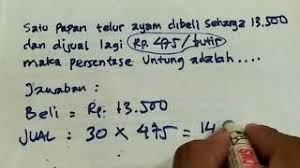 Satu Papan telur ayam dibeli seharga 13.500
dan dijual lagi Rp. 475/butir
maka persentase Untung adalah....
Jawaban :
Beli = Rp. 13.500
JUAL : 30 × 475 = 14